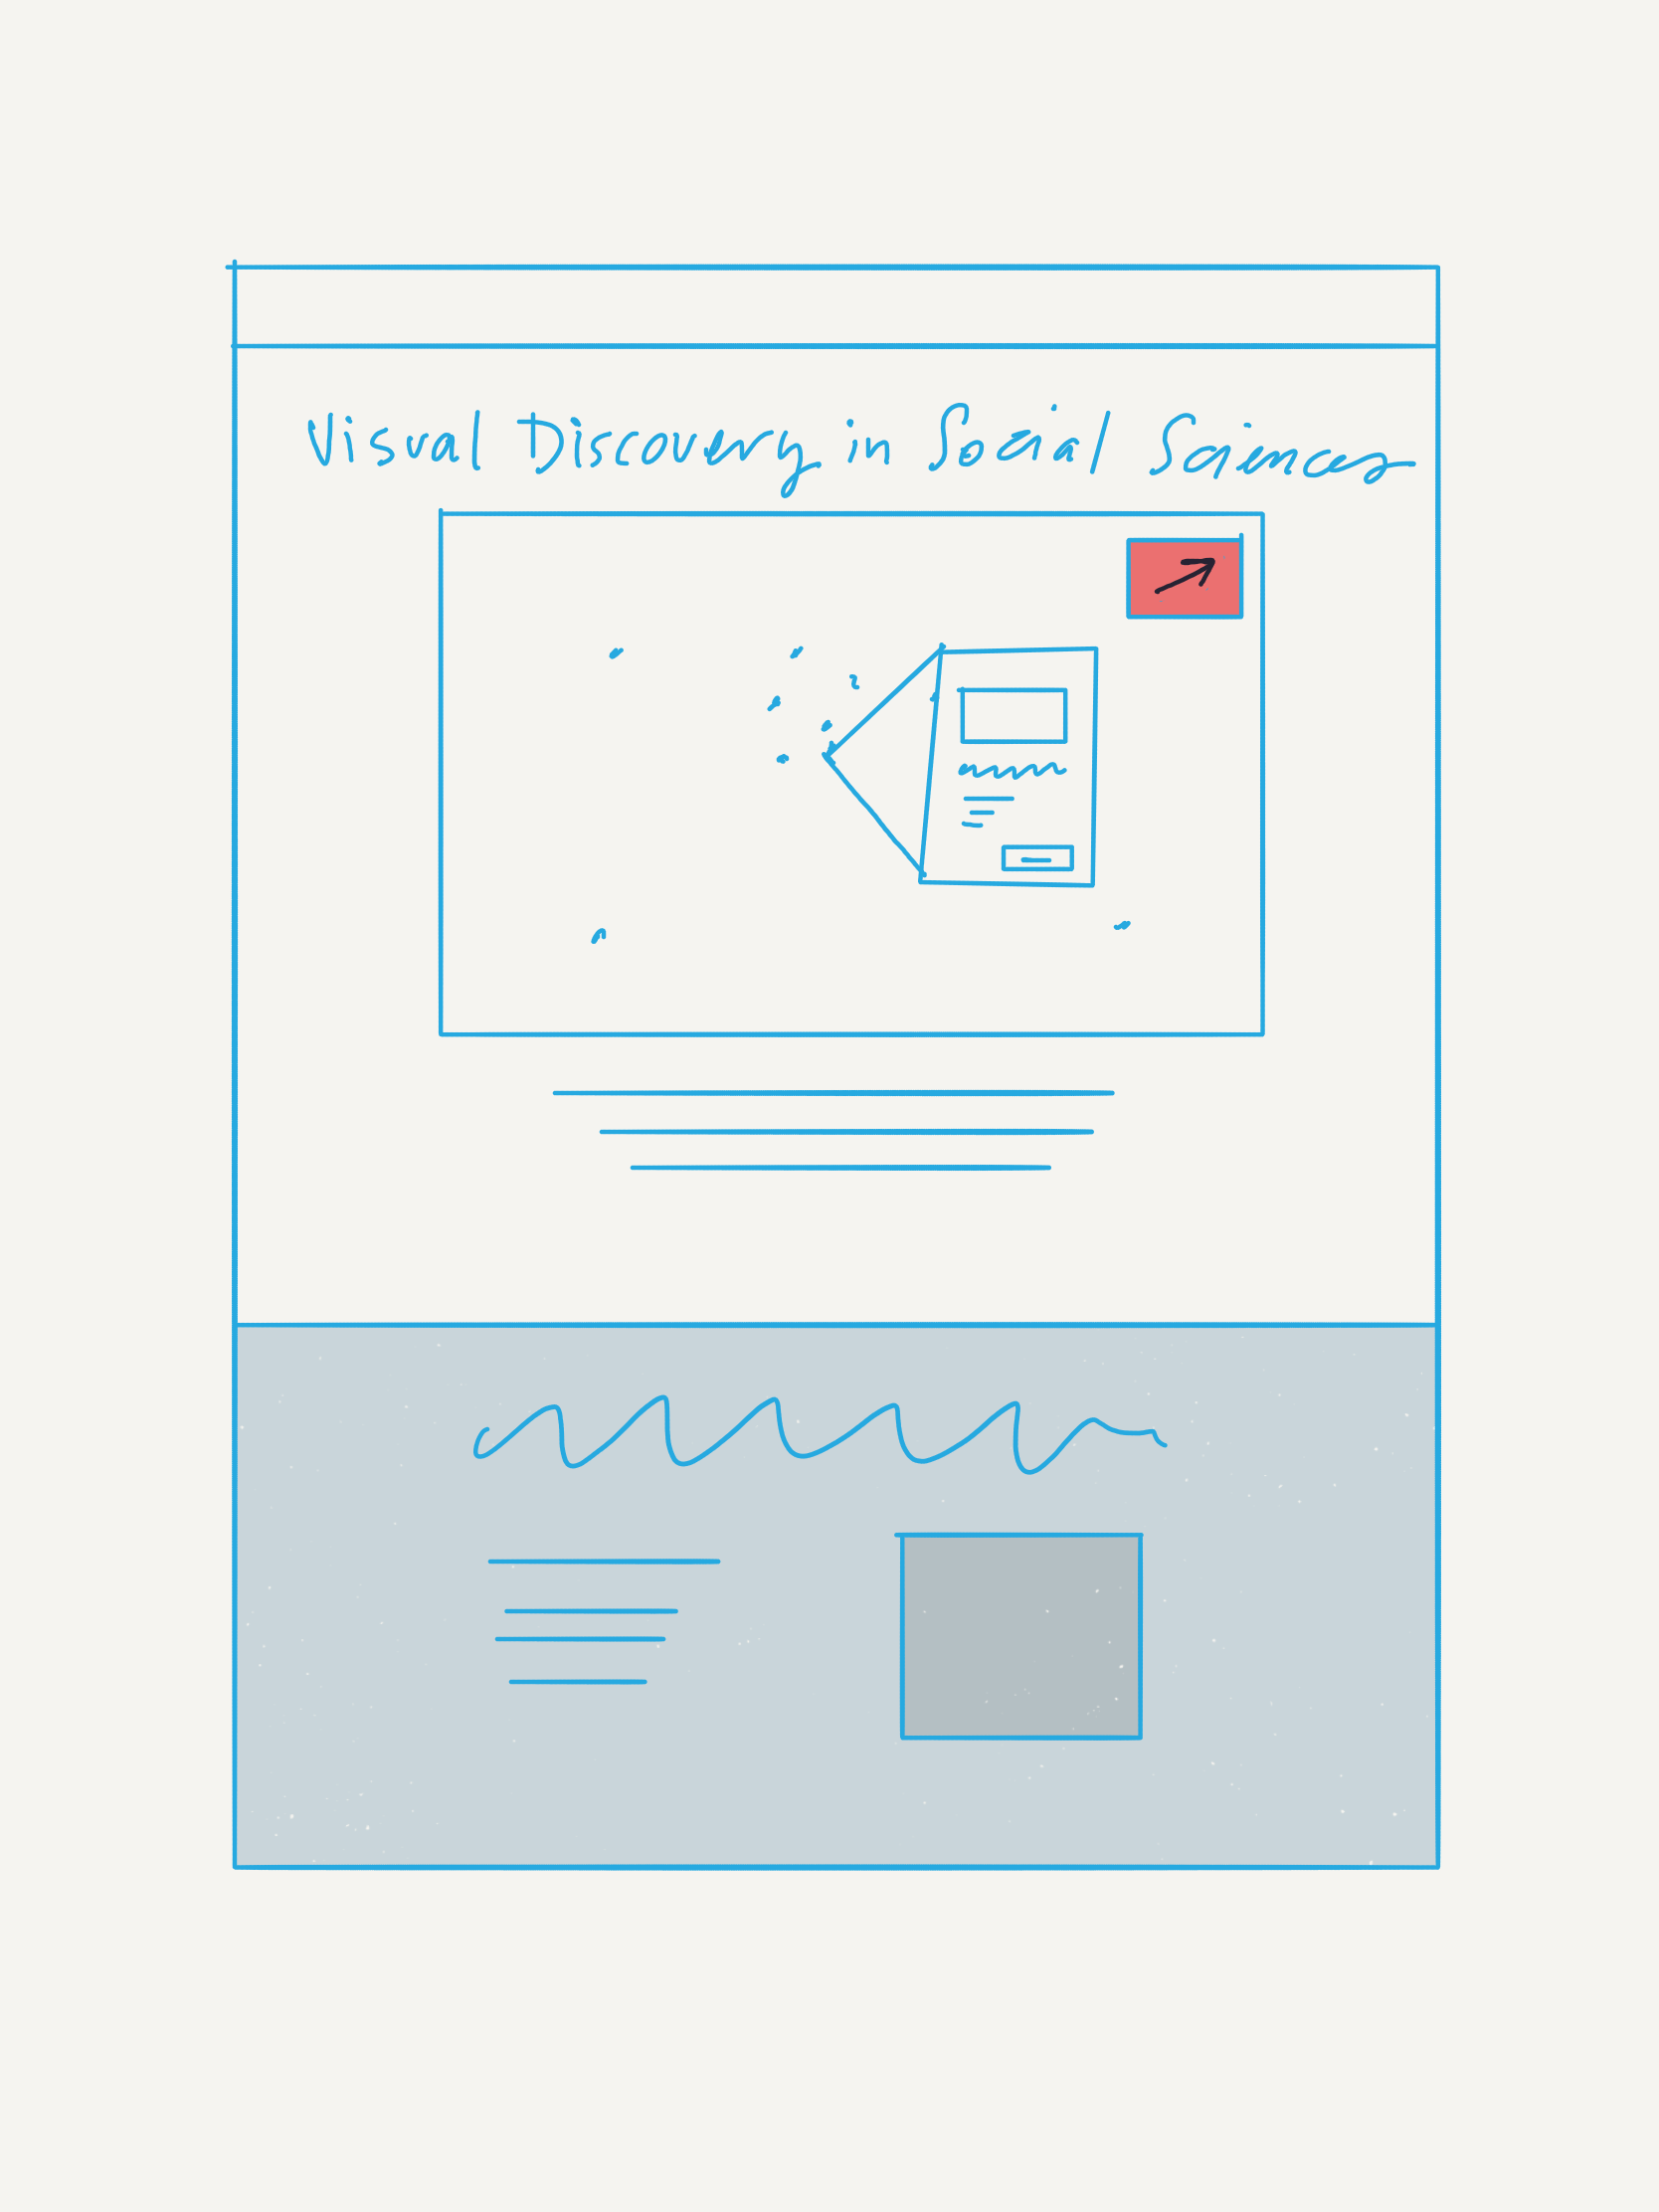 Visual Discovery in Social Sciences